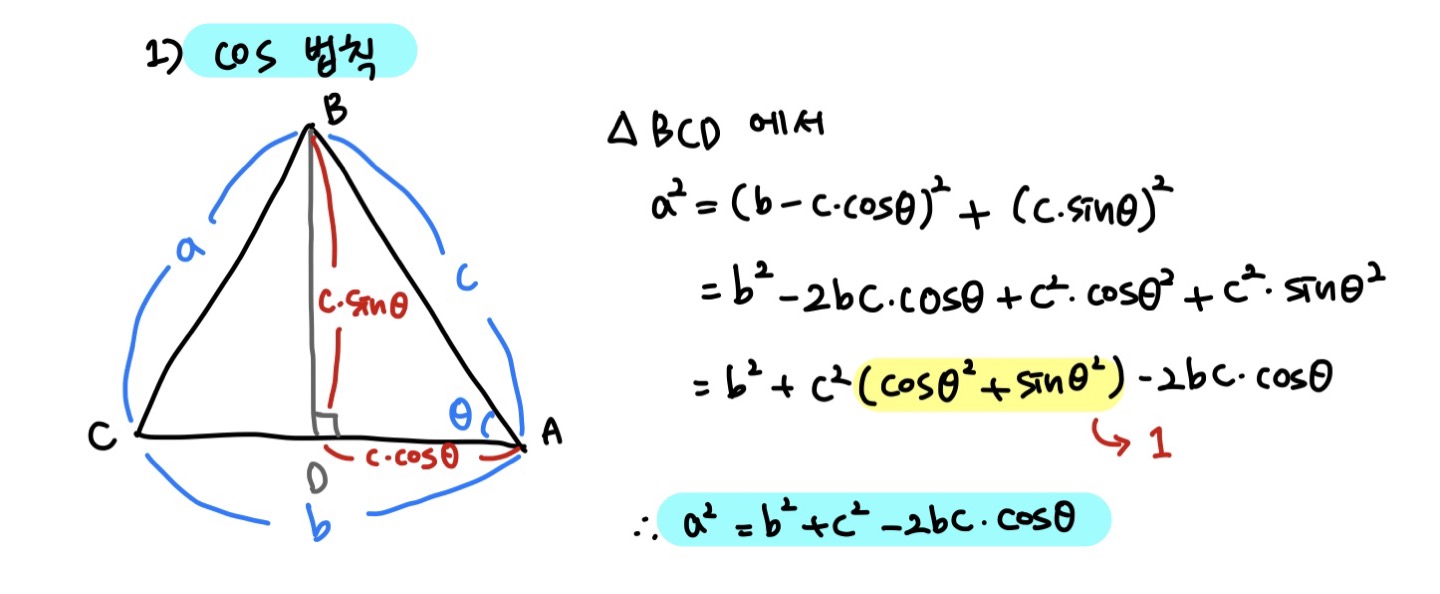 1) cos 법칙
B
a
c
c·sinθ
θ
C
A
c·cosθ
D
b
△BCD 에서
a² = (b - c·cosθ)² + (c·sinθ)²
= b² - 2bc·cosθ + c²·cosθ² + c²·sinθ²
= b² + c²(cosθ² + sinθ²) - 2bc·cosθ
↳ 1
∴ a² = b² + c² - 2bc·cosθ